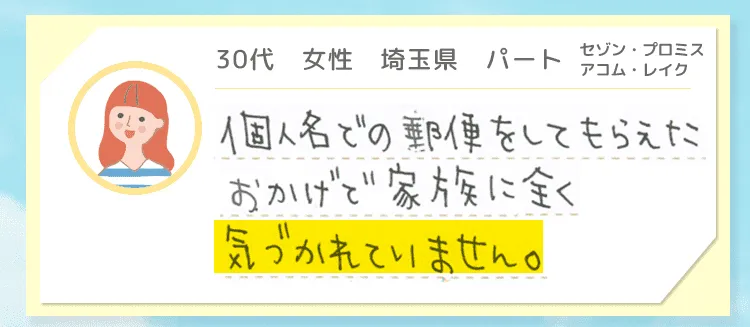 30代　女性　埼玉県　パート　セゾン・プロミス
アコム・レイク
個人名での郵便をしてもらえた
おかげで家族に全く
気づかれていません。